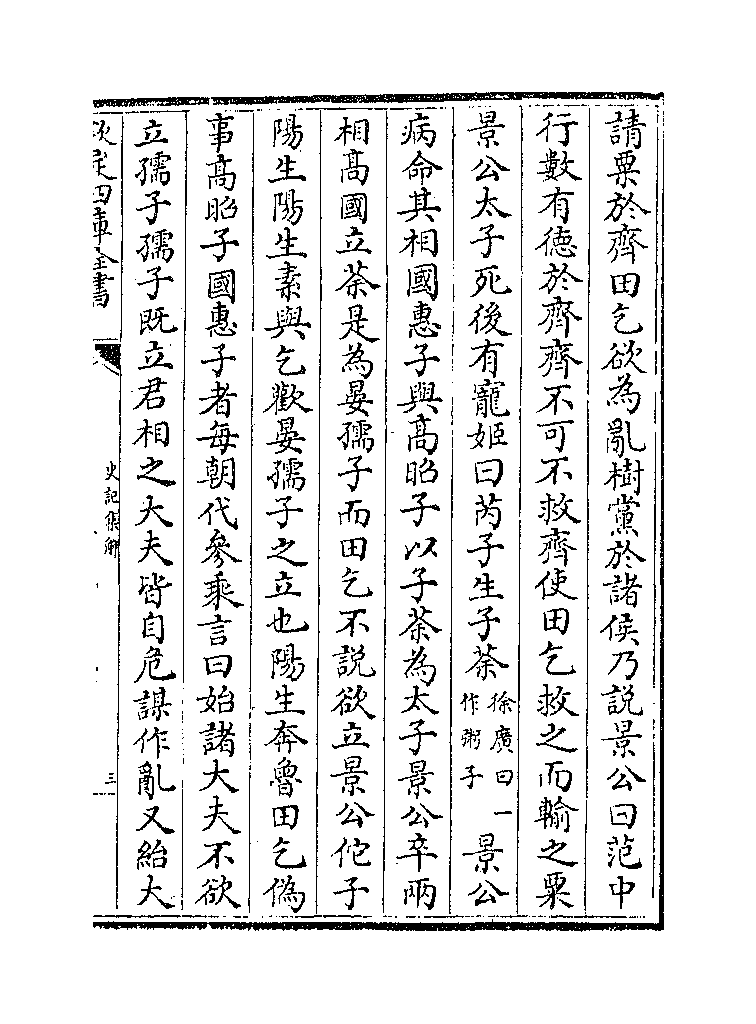 請粟於齊田乞欲為亂樹黨於諸侯乃說景公曰范中
行數有徳於齊齊不可不救齊使田乞救之而輸之粟
景公太子死後有寵姬曰芮子生子荼徐廣曰一作粥子景公
病命其相國惠子與髙昭子以子荼為太子景公卒兩
相髙國立荼是為晏孺子而田乞不説欲立景公佗子
陽生陽生素與乞歡晏孺子之立也陽生奔魯田乞偽
事髙昭子國惠子者每朝代參乘言曰始諸大夫不欲
立孺子孺子既立君相之大夫皆自危謀作亂又紿大
欽定四庫全書
史記集解
三